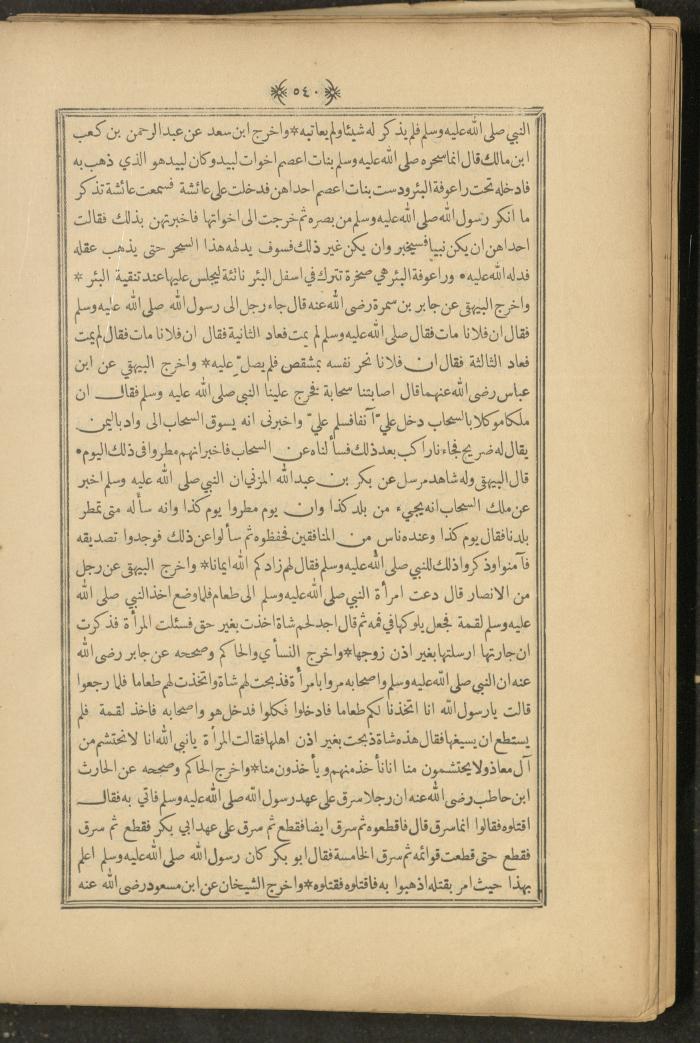 ٥٤٠
النبي صلى الله عليه وسلم فلم يذكر له شيئا ولم يعاتبه * واخرج ابن سعد عن عبد الرحمن بن كعب
ابن مالك قال انما سحره صلى الله عليه وسلم بنات اعصم اخوات لبيد وكان لبيد هو الذي ذهب به
فادخله تحت راعوفة البئر ودست بنات اعصم احداهن فدخلت على عائشة فسمعت عائشة تذكر
ما انكر رسول الله صلى الله عليه وسلم من بصره ثم خرجت الى اخواتها فاخبرتهن بذلك فقالت
احداهن ان يكن نبيا فسيخبر وان يكن غير ذلك فسوف يدلهه هذا السحر حتى يذهب عقله
فدله الله عليه • وراعوفة البئر هي صخرة تترك في اسفل البئر ناتئة ليجلس عليها عند تنقية البئر *
واخرج البيهقي عن جابر بن سمرة رضى الله عنه قال جاء رجل الى رسول الله صلى الله عليه وسلم
فقال ان فلانا مات فقال صلى الله عليه وسلم لم يمت فعاد الثانية فقال ان فلانا مات فقال لم يمت
فعاد الثالثة فقال ان فلانا نحر نفسه بمشقص فلم يصلّ عليه * واخرج البيهقي عن ابن
عباس رضى الله عنهما قال اصابتنا سحابة فخرج علينا النبي صلى الله عليه وسلم فقال ان
ملكا موكلا بالسحاب دخل عليّ آنفا فسلم عليّ واخبرنى انه يسوق السحاب الى واد باليمن
يقال له ضريح فجاءنا راكب بعد ذلك فسألناه عن السحاب فاخبر انهم مطروا فى ذلك اليوم •
قال البيهقي وله شاهد مرسل عن بكر بن عبد الله المزني ان النبي صلى الله عليه وسلم اخبر
عن ملك السحاب انه يجيء من بلد كذا وان يوم مطروا يوم كذا وانه سأله متى تمطر
بلدنا فقال يوم كذا وعنده ناس من المنافقين فحفظوه ثم سألوا عن ذلك فوجدوا تصديقه
فآمنوا وذكروا ذلك للنبي صلى الله عليه وسلم فقال لهم زادكم الله ايمانا * واخرج البيهقي عن رجل
من الانصار قال دعت امرأة النبي صلى الله عليه وسلم الى طعام فلما وضع اخذ النبي صلى الله
عليه وسلم لقمة فجعل يلوكها في فمه ثم قال اجد لحم شاة اخذت بغير حق فسئلت المرأة فذكرت
ان جارتها ارسلتها بغير اذن زوجها * واخرج النسأي والحاكم وصححه عن جابر رضى الله
عنه ان النبي صلى الله عليه وسلم واصحابه مروا بامرأة فذبحت لهم شاة واتخذت لهم طعاما فلما رجعوا
قالت يارسول الله انا اتخذنا لكم طعاما فادخلوا فكلوا فدخل هو واصحابه فاخذ لقمة فلم
يستطع ان يسيغها فقال هذه شاة ذبحت بغير اذن اهلها فقالت المرأة يانبي الله انا لا نحتشم من
آل معاذ ولا يحتشمون منا انا نأخذ منهم ويأخذون منا * واخرج الحاكم وصححه عن الحارث
ابن حاطب رضى الله عنه ان رجلا سرق على عهد رسول الله صلى الله عليه وسلم فاتي به فقال
اقتلوه فقالوا انما سرق قال فاقطعوه ثم سرق ايضا فقطع ثم سرق على عهد ابي بكر فقطع ثم سرق
فقطع حتى قطعت قوائمه ثم سرق الخامسة فقال ابو بكر كان رسول الله صلى الله عليه وسلم اعلم
بهذا حيث امر بقتله اذهبوا به فاقتلوه فقتلوه * واخرج الشيخان عن ابن مسعود رضى الله عنه